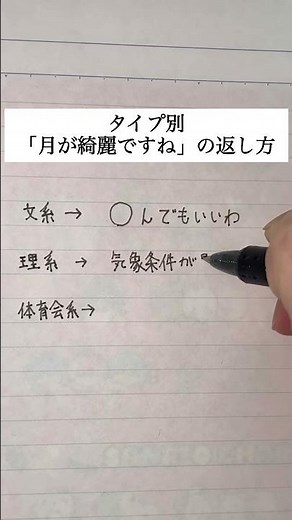 タイプ別
「月が綺麗ですね」の返し方
文系→ ○んでもいいわ
理系→ 気象条件が
体育会系→